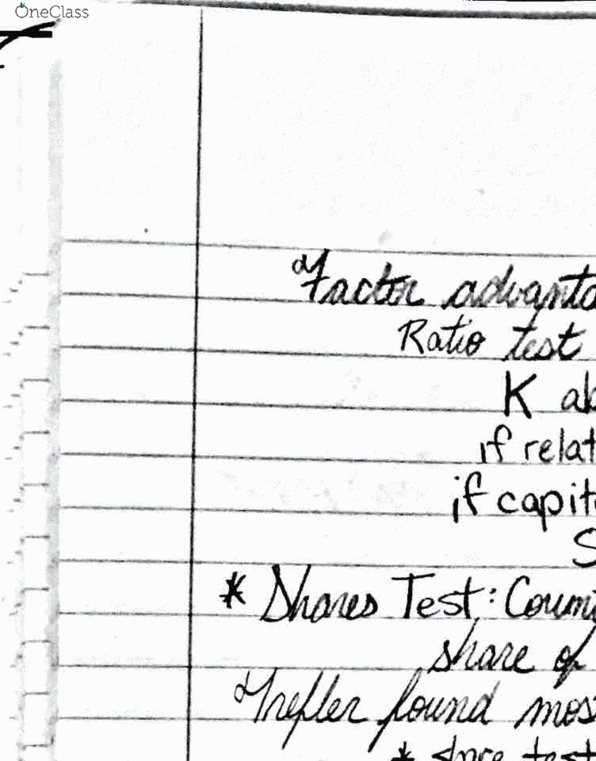 OneClass
Factor advanta
Ratio test
K ab
if relat
if capit
S
* Shares Test: Coun
share of
Trefler found mos
* once test